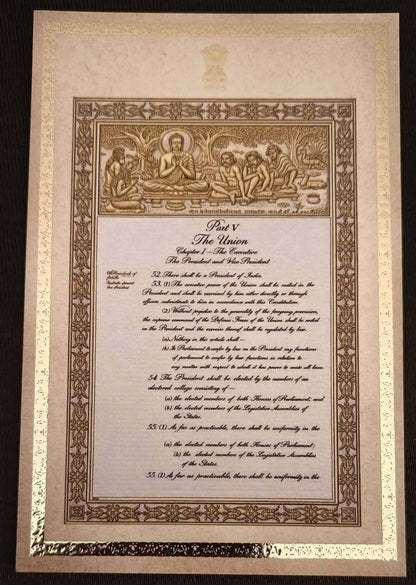 Part V
The Union
Chapter I—The Executive
The President and Vice President
52. There shall be a President of India.
53. (1) The executive power of the Union shall be vested in the
President and shall be exercised by him either directly or through
officers subordinate to him in accordance with this Constitution.
(2) Without prejudice to the generality of the foregoing provision,
the supreme command of the Defence Forces of the Union shall be vested
in the President and the exercise thereof shall be regulated by law.
(a) Nothing in this article shall —
(b) Parliament
of parliament
any matter with respect to
54. The President shall be elected by the members of an
electoral college consisting of —
(a) the elected members of both Houses of Parliament; and
(b) the elected members of the Legislative Assemblies of
the States.
55. (1) As far as practicable, there shall be uniformity in the
(a) the elected members of both Houses of Parliament;
(b) the elected members of the Legislative Assemblies
of the States.
55. (1) As far as practicable, there shall be uniformity in the